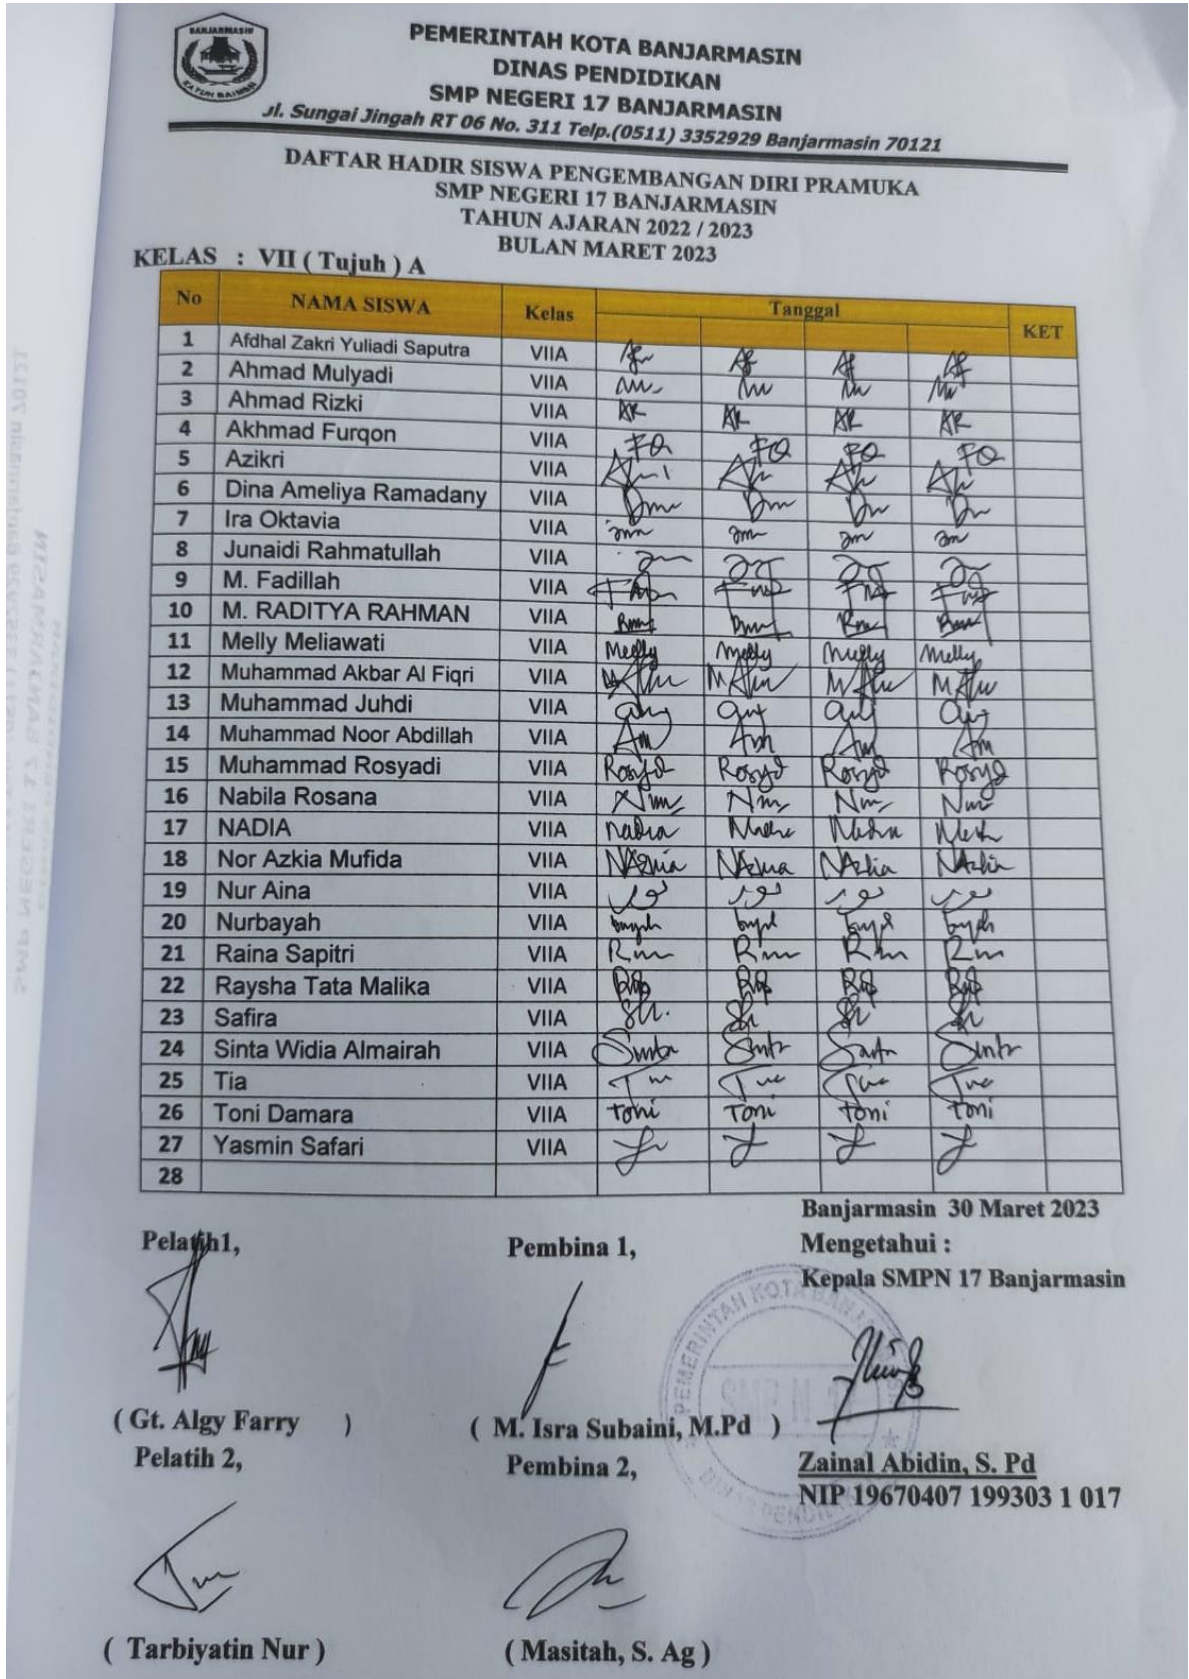 BANJARMASIN
KAYUH BAIMBAI
PEMERINTAH KOTA BANJARMASIN
DINAS PENDIDIKAN
SMP NEGERI 17 BANJARMASIN
Jl. Sungai Jingah RT 06 No. 311 Telp.(0511) 3352929 Banjarmasin 70121
DAFTAR HADIR SISWA PENGEMBANGAN DIRI PRAMUKA
SMP NEGERI 17 BANJARMASIN
TAHUN AJARAN 2022 / 2023
BULAN MARET 2023
KELAS : VII ( Tujuh ) A
No NAMA SISWA Kelas Tanggal KET
1 Afdhal Zakri Yuliadi Saputra VIIA
2 Ahmad Mulyadi VIIA
3 Ahmad Rizki VIIA AR AR AR AR
4 Akhmad Furqon VIIA FQ FQ FQ FQ
5 Azikri VIIA
6 Dina Ameliya Ramadany VIIA
7 Ira Oktavia VIIA
8 Junaidi Rahmatullah VIIA
9 M. Fadillah VIIA
10 M. RADITYA RAHMAN VIIA
11 Melly Meliawati VIIA Melly Melly Melly Melly
12 Muhammad Akbar Al Fiqri VIIA
13 Muhammad Juhdi VIIA
14 Muhammad Noor Abdillah VIIA
15 Muhammad Rosyadi VIIA Rosyd Rosyd Rosyd Rosyd
16 Nabila Rosana VIIA
17 NADIA VIIA nadia
18 Nor Azkia Mufida VIIA
19 Nur Aina VIIA
20 Nurbayah VIIA
21 Raina Sapitri VIIA
22 Raysha Tata Malika VIIA
23 Safira VIIA
24 Sinta Widia Almairah VIIA
25 Tia VIIA
26 Toni Damara VIIA toni Toni toni toni
27 Yasmin Safari VIIA
28
Banjarmasin 30 Maret 2023
Pelatih1, Pembina 1, Mengetahui :
Kepala SMPN 17 Banjarmasin
( Gt. Algy Farry ) ( M. Isra Subaini, M.Pd )
Pelatih 2, Pembina 2, Zainal Abidin, S. Pd
NIP 19670407 199303 1 017
( Tarbiyatin Nur ) ( Masitah, S. Ag )